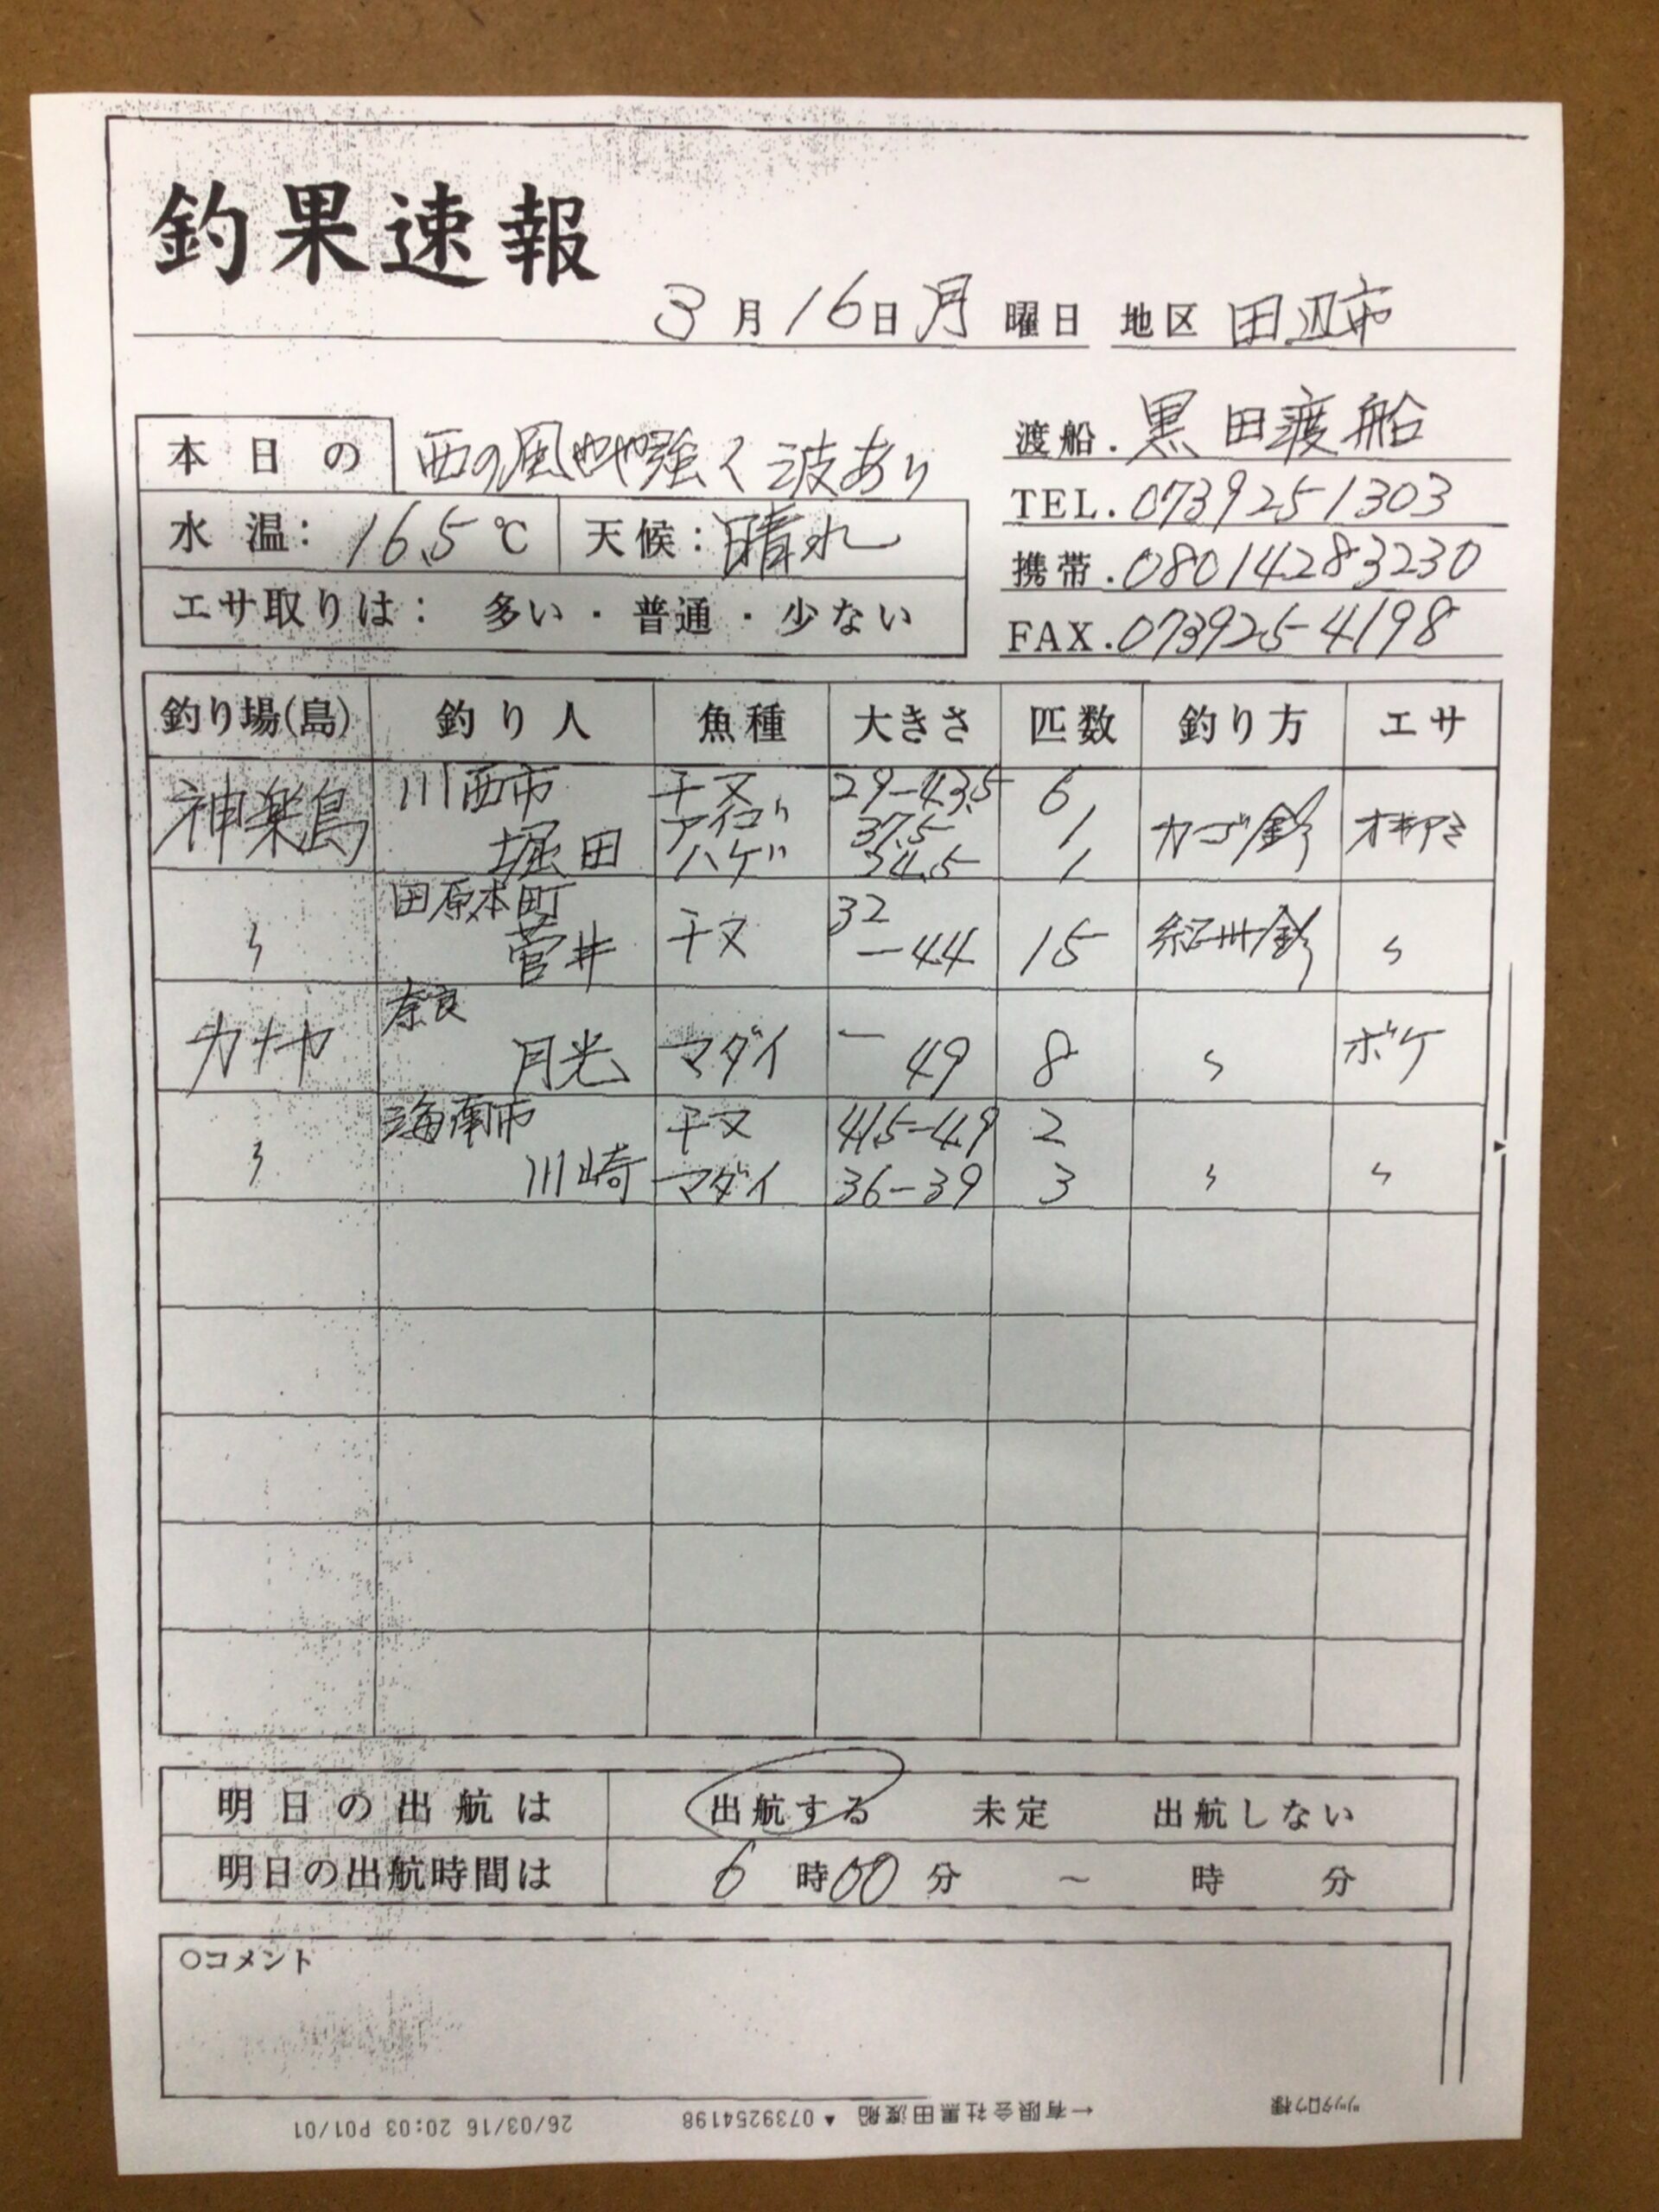 釣果速報
3月16日月曜日 地区 田辺市
本日の 西の風やや強く波あり
水温: 16.5℃ 天候: 晴れ
エサ取りは: 多い・普通・少ない
渡船. 黒田渡船
TEL. 0739251303
携帯. 08014283230
FAX. 073925-4198
釣り場(島) 釣り人 魚種 大きさ 匹数 釣り方 エサ
神楽島 川西市 堀田 チヌ 29-43.5 6 カゴ釣 オキアミ
アイゴ 37.5 1
ハゲ 34.5 1
〃 田原本町 菅井 チヌ 32-44 15 紀州釣 〃
カナヤ 奈良 月光 マダイ -49 8 〃 ボケ
〃 海南市 川崎 チヌ 41.5-49 2 〃 〃
マダイ 36-39 3
明日の出航は 出航する 未定 出航しない
明日の出航時間は 6時00分 ~ 時 分
○コメント
ツッタロウ様 ←有限会社黒田渡船 ▲ 0739254198 26/03/16 20:03 P01/01